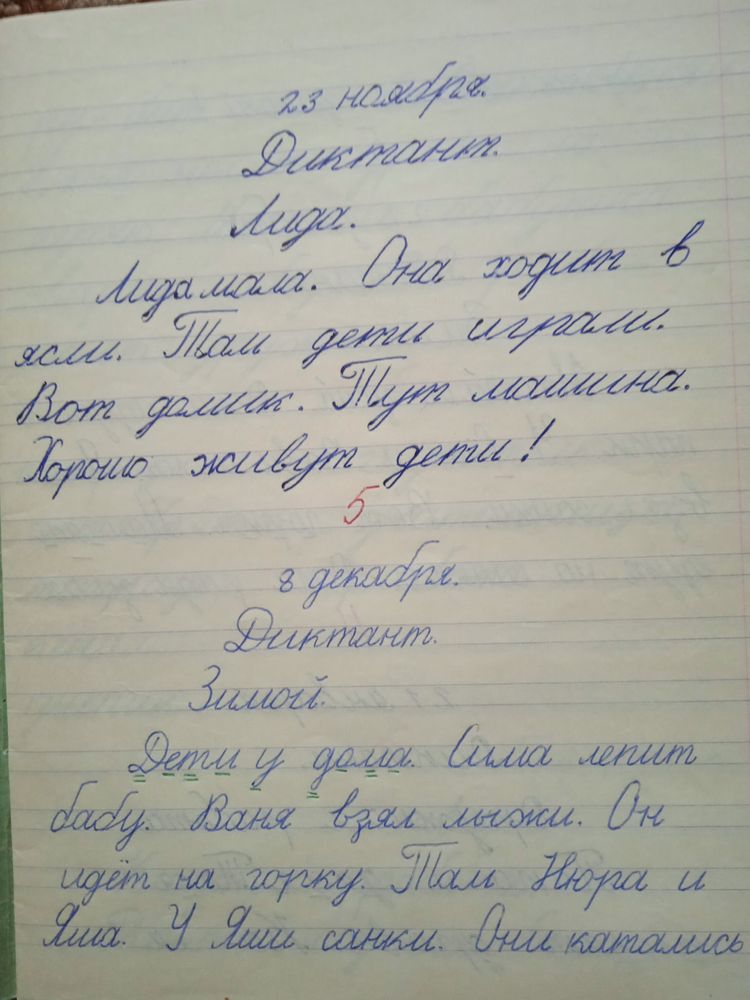 23 ноября.
Диктант.
Лида.
Лида мала. Она ходит в
ясли. Там дети играли.
Вот домик. Тут машина.
Хорошо живут дети!
5
8 декабря.
Диктант.
Зимой.
Дети у дома. Сима лепит
бабу. Ваня взял лыжи. Он
идёт на горку. Там Нюра и
Яша. У Яши санки. Они катались